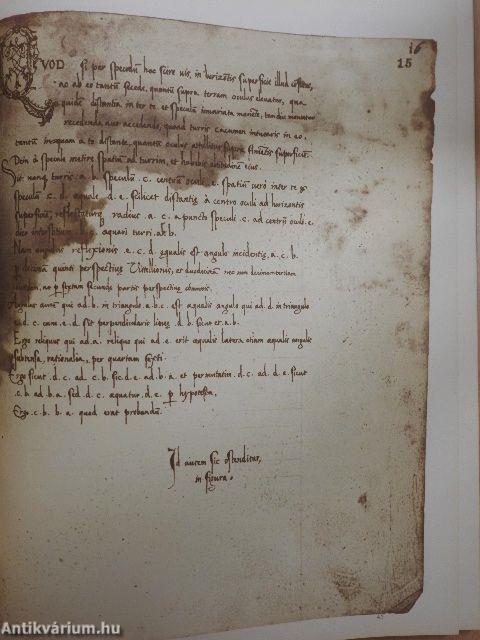 16
15
QVOD si per speculũ hoc scire uis, in horizõtis superficie illud
ac ab eo tantũ secede, quantũ supra terram oculus eleuatur, qua
quidẽ distantia inter te et speculũ inuariata manẽte, tandiu mouearis
recedendo aut accedendo, quoad turris cacumen intuearis in eo,
tantũ inquam a te distante, quantũ oculus attollitur supra superficiẽ.
Dein à speculo metire spatiũ ad turrim, et habebis altitudinẽ eius.
Sit nanq turris .a.b. speculũ .c. centrũ oculi .e. spatiũ uero inter te et
speculũ .d.c. aequale .d.e. scilicet distantiæ à centro oculi ad horizontis
superficiẽ, reflectaturq radius .a.c. a puncto speculi .c. ad centrũ oculi .e.
dico interstitium .b.c. aequari turri .a.b.
Nam angulus reflexionis .e.c.d. equalis est angulo incidentiæ .a.c.b.
p decimã quinti perspectiuæ Vitellionis, et duodecimã nec non decimamtertiam
ac p sextam secundæ partis perspectiuæ communis.
Angulus autem qui ad .b. in triangulo .a.b.c. est aequalis angulo qui ad .d. in triangulo
.e.d.c. cum .e.d. sit perpendicularis lineæ .d.b. sicut et .a.b.
Ergo reliquus qui ad .a. reliquo qui ad .e. erit aequalis latera etiam aequalis angulis
subtensa, rationalia, per quartam sexti.
Ergo sicut .d.c. ad .c.b. sic .d.e. ad .b.a. et permutatim .d.c. ad .d.e. sicut
.c.b. ad .b.a. sed .d.c. aequatur .d.e. p hypotesim,
Ergo .c.b. .b.a. quod erat probandũ.
Id autem sic ostenditur,
in figura.
Antikvárium.hu